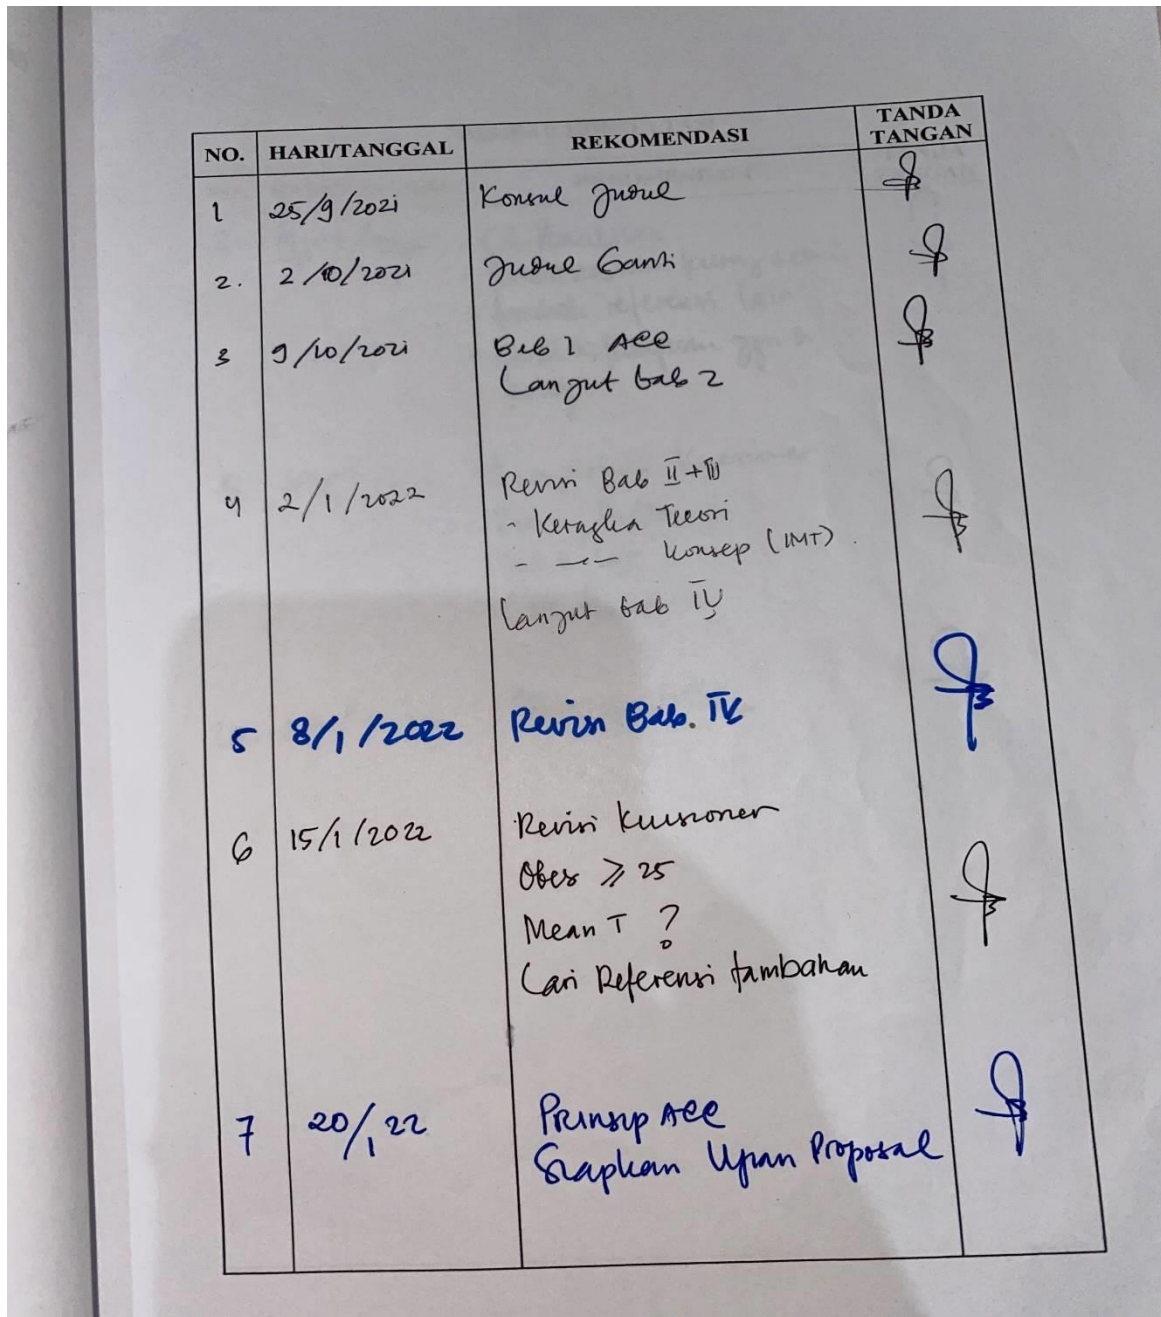 NO. HARI/TANGGAL REKOMENDASI TANDA TANGAN
1 25/9/2021 Konsul Judul
2. 2/10/2021 Judul Ganti
3 9/10/2021 Bab 1 ACC
Lanjut bab 2
4 2/1/2022 Revisi Bab II + III
- Keragka Teori
- Konsep (IMT).
Lanjut bab IV
5 8/1/2022 Revisi Bab. IV
6 15/1/2022 Revisi Kuisioner
Obes ≥ 25
Mean T ?
Cari Referensi tambahan
7 20/1 22 Prinsip ACC
Siapkan Ujian Proposal